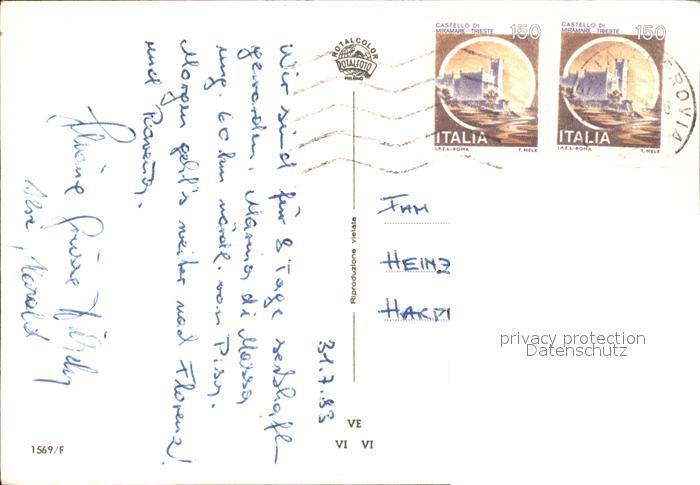 31.7.83
Wir sind für 8 Tage seßhaft
geworden. Marina di Massa
ung. 60 km nördl. von Pisa.
Morgen geht's weiter nach Florenz!
und Ravenna.
Schöne Grüße
Harald
ROTALCOLOR
ROTALFOTO
MILANO
CASTELLO DI
MIRAMARE - TRIESTE
150
ITALIA
I.P.Z.S.-ROMA
T. MELE
CASTELLO DI
MIRAMARE - TRIESTE
150
ITALIA
I.P.Z.S.-ROMA
T. MELE
Riproduzione vietata
FAM
HEINZ
privacy protection
Datenschutz
VE
VI VI
1569/F